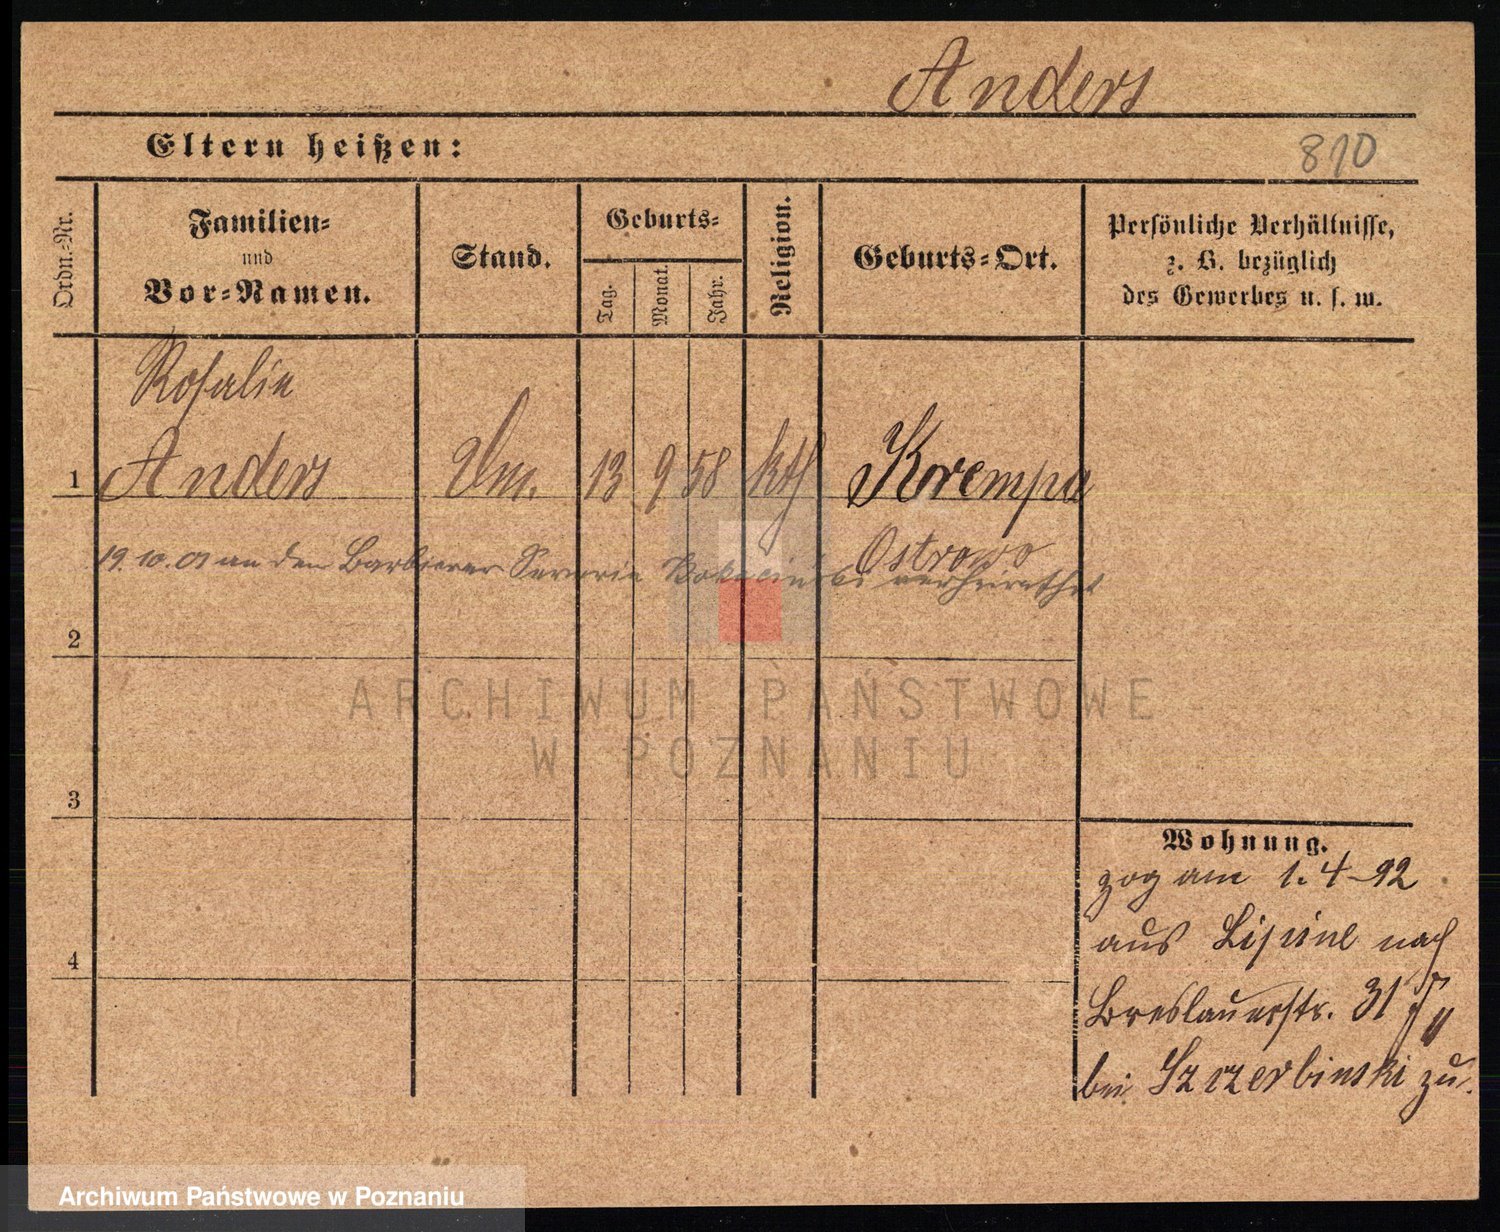 Anders
Eltern heißen:
810
Ordn.-Nr.
Familien-
und
Vor-Namen.
Stand.
Geburts-
Tag.
Monat.
Jahr.
Religion.
Geburts-Ort.
Persönliche Verhältnisse,
z. B. bezüglich
des Gewerbes u. s. w.
Rosalie
1 Anders 13 9 58 kth Krempa
Ostrowo
19. 10. 01 an den Barbierer Severin verheirathet
2
3
4
Wohnung.
zog am 1. 4 92
aus Lipine nach
Breslauerstr. 31
bei Szczerbinski zu.
ARCHIWUM PAŃSTWOWE
W POZNANIU
Archiwum Państwowe w Poznaniu